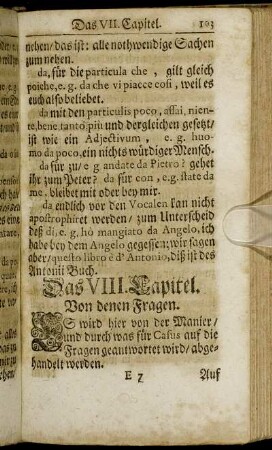 Das VII. Capitel. 103
nehen/das ist: alle nothwendige Sachen
zum nehen.
da, für die particula che, gilt gleich
poiche, e. g. da che vi piacce cosi, weil es
euch also beliebet.
da mit den particulis poco, assai, nien-
te, bene, tanto, più und dergleichen gesetzt/
ist wie ein Adjectivum, e. g. huo-
mo da poco, ein nichts würdiger Mensch.
da für zu/ e. g andate da Pietro? gehet
ihr zum Peter? da für con, e. g. state da
me, bleibet mit oder bey mir.
da endlich vor den Vocalen kan nicht
apostrophiret werden/ zum Unterscheid
deß di, e. g. hò mangiato da Angelo, ich
habe bey dem Angelo gegessen; wir sagen
aber/ questo libro è d' Antonio, diß ist des
Antonii Buch.
Das VIII. Capitel.
Von denen Fragen.
ES wird hier von der Manier/
und durch was für Casus auf die
Fragen geantwortet wird/ abge-
handelt werden.
E 7 Auf